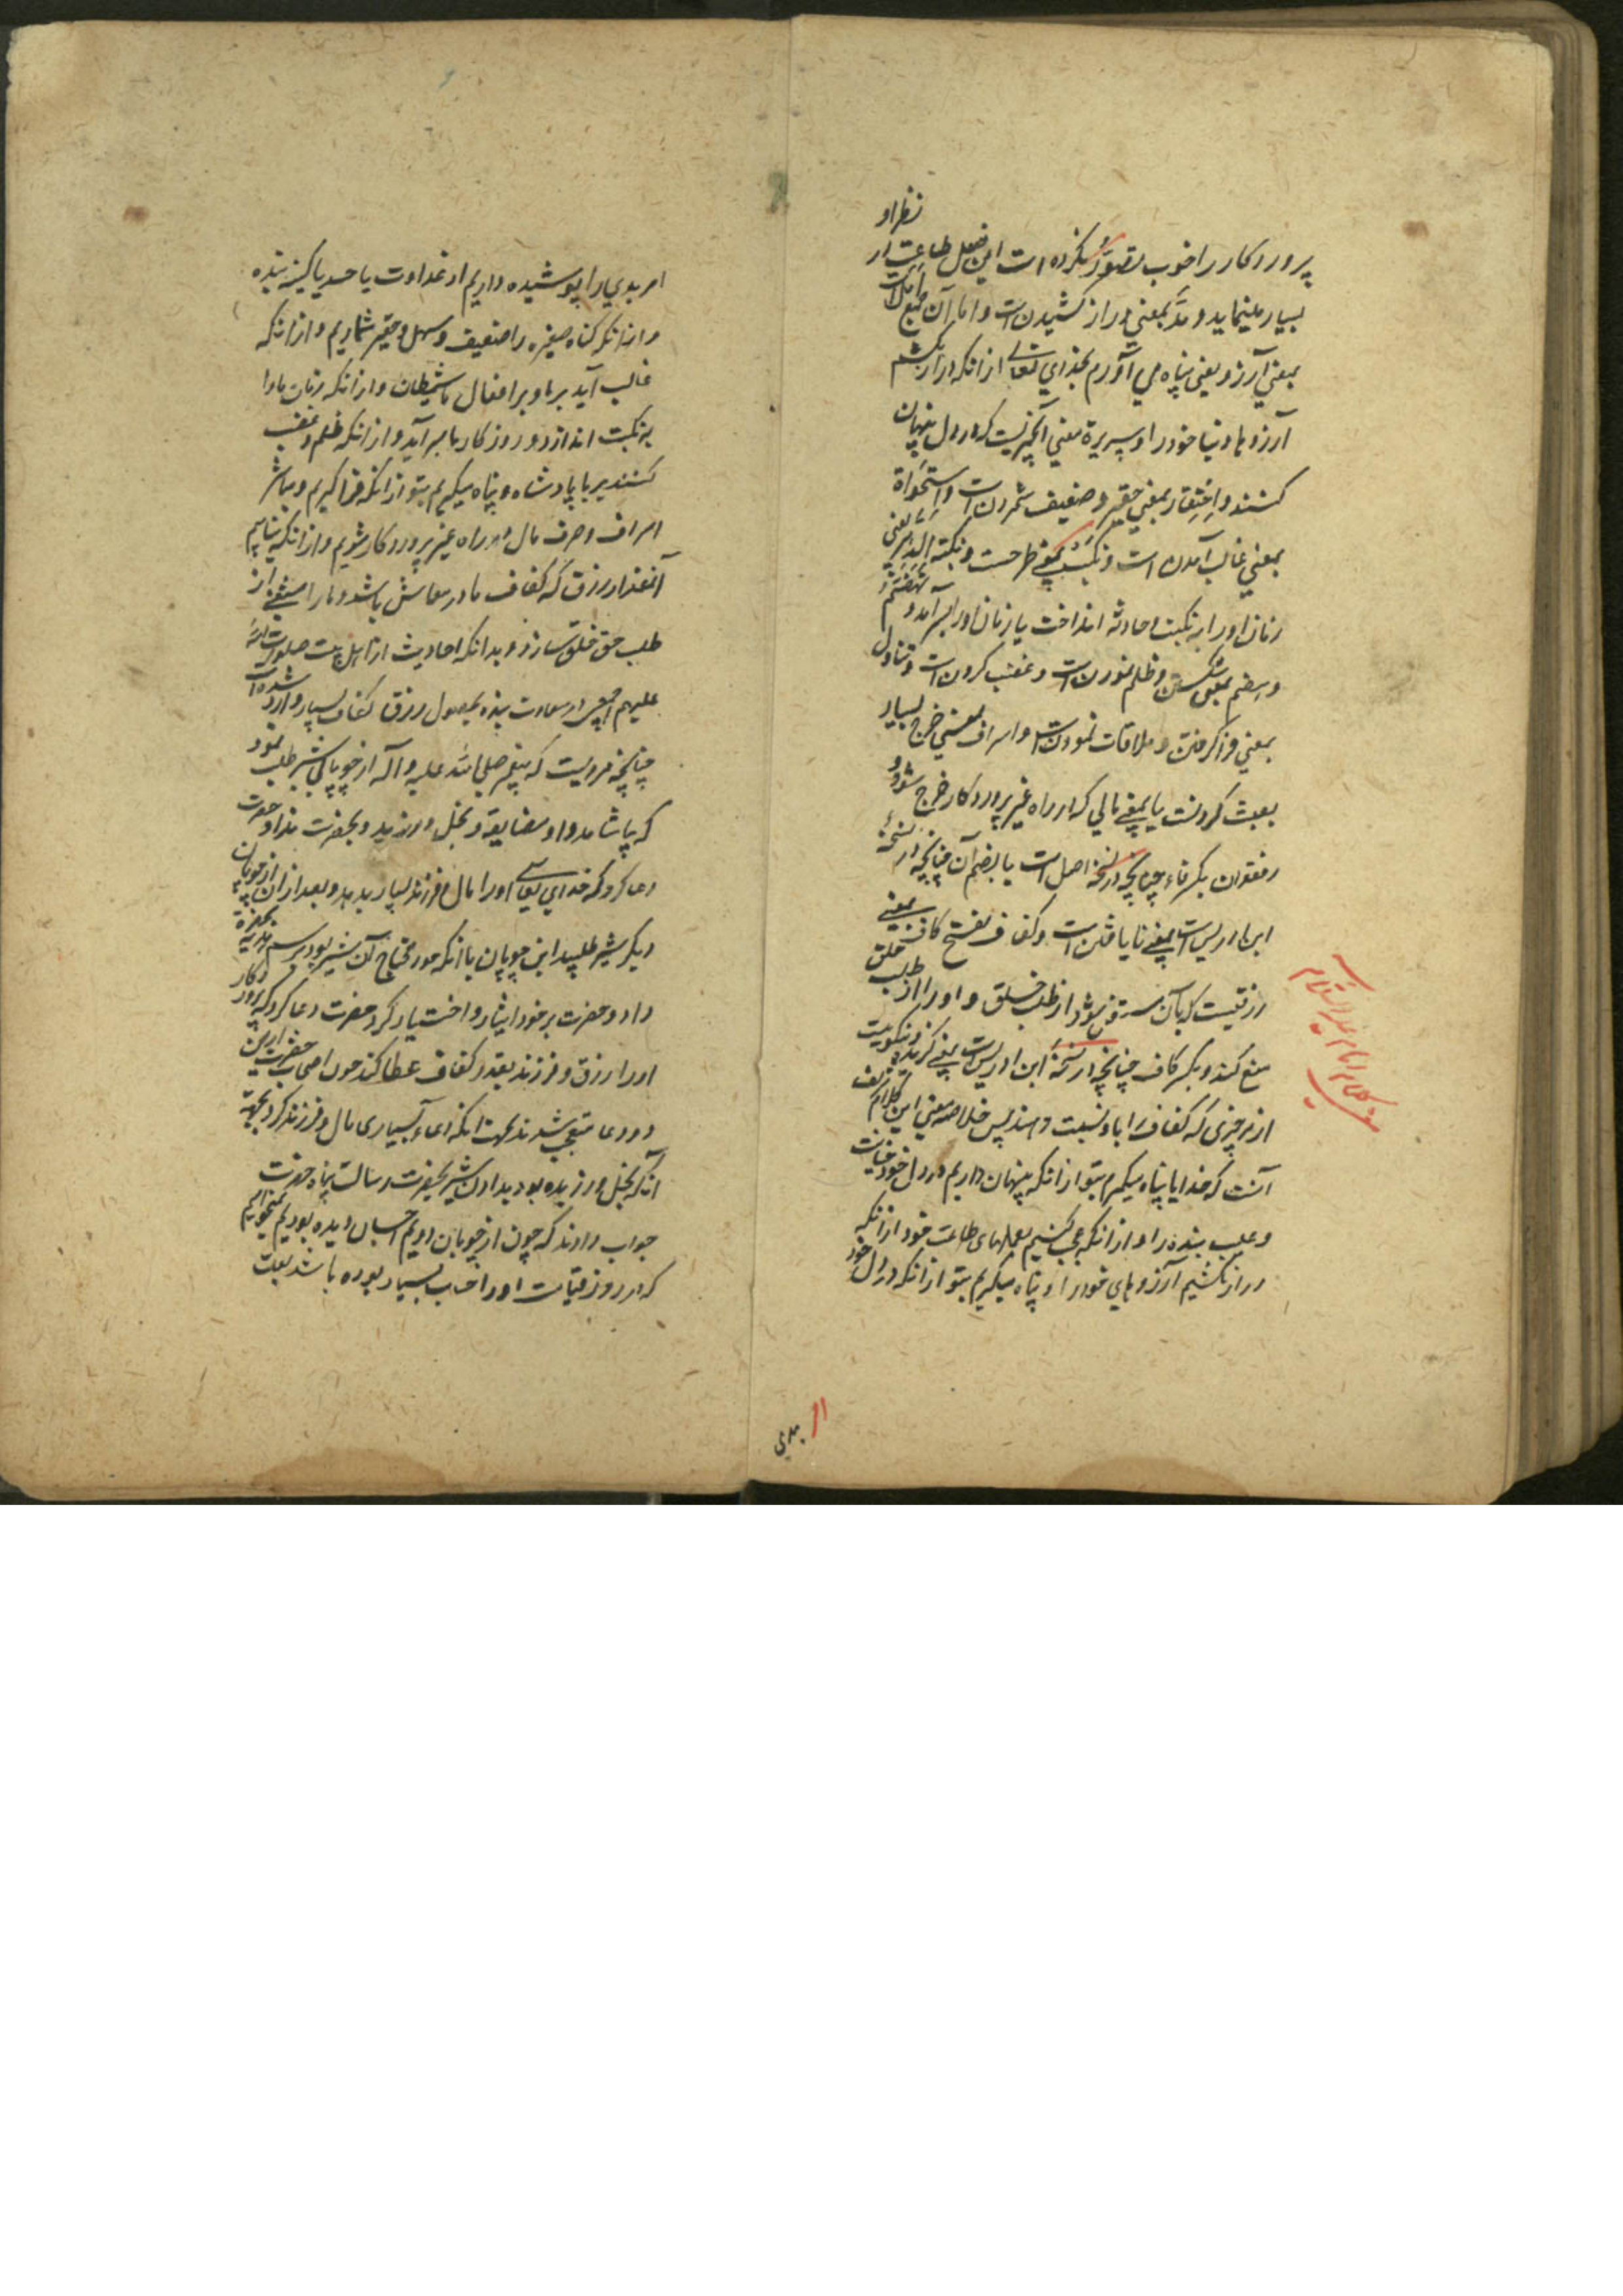 پروردکار را خوب تصور نکرده است این فعل طاعت در نظر او
بسیار مینماید و مدّ بمعنی دراز کشیدن است و امال آن جمع امل است
بمعنی آرزو یعنی پناه می آورم بخدای تعالی از انکه دراز بکشم
آرزوها دنیا خود را و سریرة معنی آنچیزیست که در دل پنهان
کنند و احتقار بمعنی حقیر و ضعیف شمردن است و استحواذ
بمعنی غالب آمدن است و نکبت بمعنی طرحست و نکبته الدهر یعنی
زمان او را به نکبت و حادثه انداخت یا زمان او را بسر آمد و تهضم
و هضم بمعنی شکستن و ظلم نمودن است و غضب کردن است و تناول
بمعنی فراکرفتن و ملاقات نمودنست و اسراف بمعنی خرج بسیار
بعبث کردنست یا بمعنی مالی که در راه غیر پروردکار خرج شود و
فقدان بکسر فاء چنانچه در نسخه اصل است یا بضم آن چنانچه در نسخهٔ
ابن ادریس است بمعنی نایافتن است و کفاف بفتح کاف بمعنی
رزقیست که بآن مستغنی شود از طلب خلق و او را از طلب خلق
منع کند و بکسر کاف چنانچه در نسخهٔ ابن ادریس است بمعنی کزیده و نیکوییت
از هر چیزی که کفاف را با و نسبت دهند پس خلاصه معنی این کلام شریف
آنست که خدایا پناه میکیرم بتو از انکه پنهان داریم در دل خود خیانت
و عیب بنده را و از انکه عجب کنیم بعملهای طاعت خود از انکه
دراز بکشیم آرزوهای خود را و پناه میکیریم بتو از انکه در دل خود
امر بدی را پوشیده داریم از عداوت یا حسد یا کینه بنده
و از انکه کناه صغیره را ضعیف و سهل و حقیر شماریم و از انکه
غالب آید بر ما و بر افعال ما شیطان و از انکه زمان ما را
به نکبت اندازد و روزکار ما بسر آید و از انکه ظلم و غضب
کنند بر ما پادشاه و پناه میکیریم بتو از انکه فراکیریم و مباشر
اسراف و صرف مال در راه غیر پروردکار شویم و از انکه نیابیم
آنمقدار رزق که کفاف ما در معاش باشد و ما را مستغنی از
طلب حق خلق سازد و بدانکه احادیث از اهل بیت صلوات الله
علیهم اجمعین در سعادت بنده بحصول رزق کفاف بسیار وارد شده است
چنانچه مرویست که پیغمبر صلی الله علیه و آله از چوپانی شیر طلب نمود
که بیاشامد و او مضایقه و بخل ورزید و بحضرت نداد حضرت
دعا کرد که خدای تعالی او را مال و فرزند بسیار بدهد و بعد از ان از چوپان
دیکر شیر طلبید این چوپان با انکه خود محتاج آن شیر بود برسم هدیه بحضرة
داد و حضرت بر خود ایثار و اختیار کرد حضرت دعا کرد که پروردکار
او را رزق و فرزند بقدر کفاف عطا کند چون اصحاب حضرت از این
دو دعا متعجب شدند بجهت انکه دعاء بسیاری مال و فرزند کرد بجهة
آنکه بخل ورزیده بود بدادن شیر بحضرت رسالت پناه حضرت
جواب دادند که چون از چوپان دویم احسان دیده بودیم نمیخواهیم
که در روز قیامت او را حساب بسیار بوده باشد بعلت
امر بدی